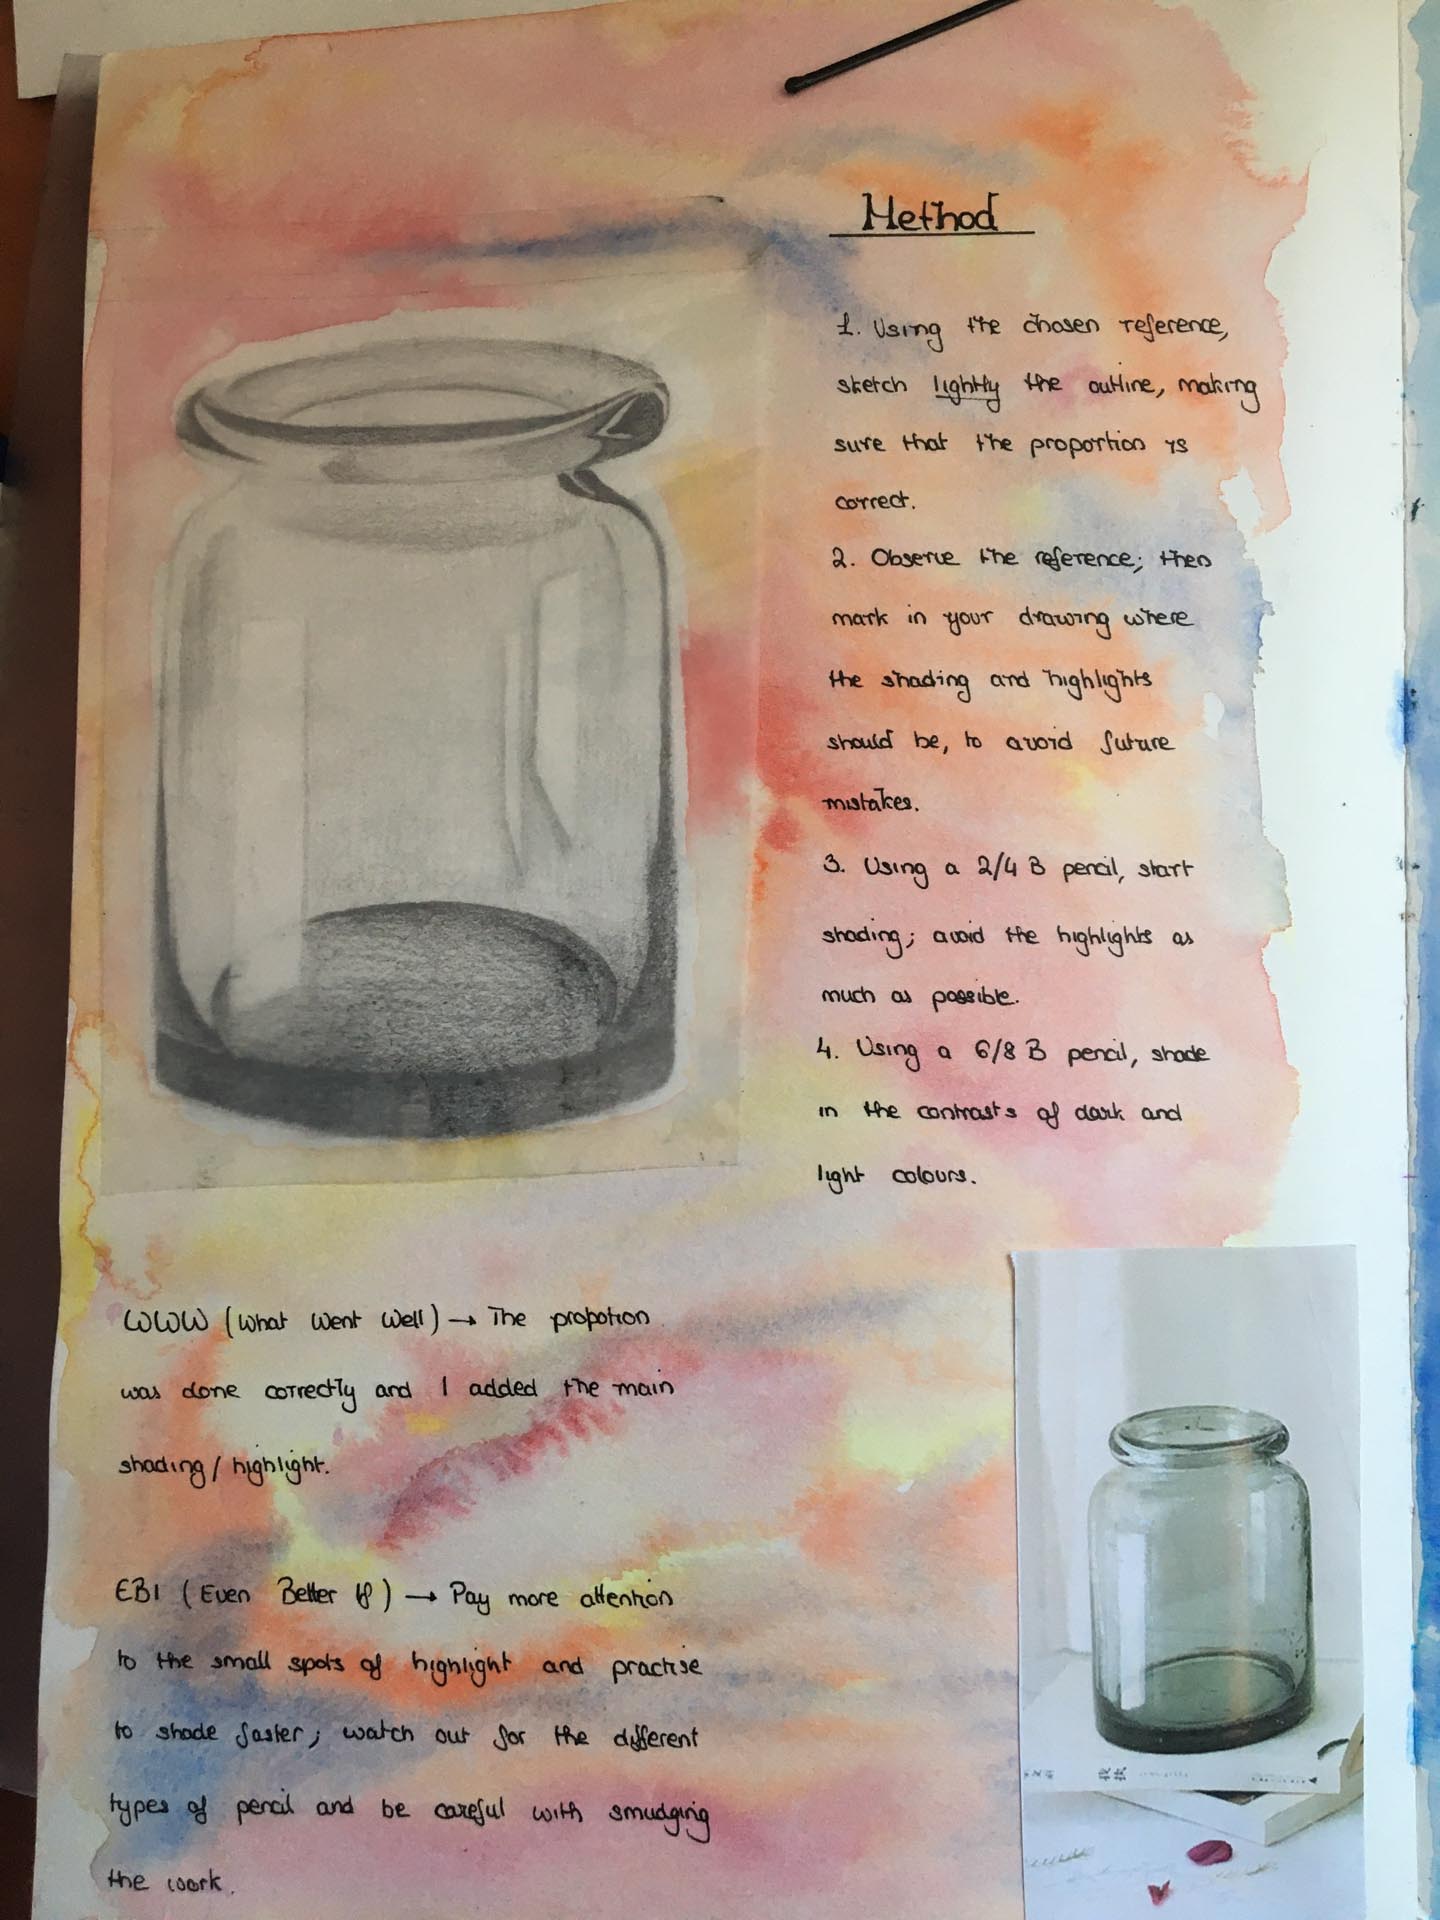 Method
1. Using the chosen reference,
sketch lightly the outline, making
sure that the proportion is
correct.
2. Observe the reference; then
mark in your drawing where
the shading and highlights
should be, to avoid future
mistakes.
3. Using a 2/4 B pencil, start
shading; avoid the highlights as
much as possible.
4. Using a 6/8 B pencil, shade
in the contrasts of dark and
light colours.
WWW (What Went Well) → The propotion
was done correctly and I added the main
shading/highlight.
EBI (Even Better If) → Pay more attention
to the small spots of highlight and practise
to shade faster; watch out for the different
types of pencil and be careful with smudging
the work.